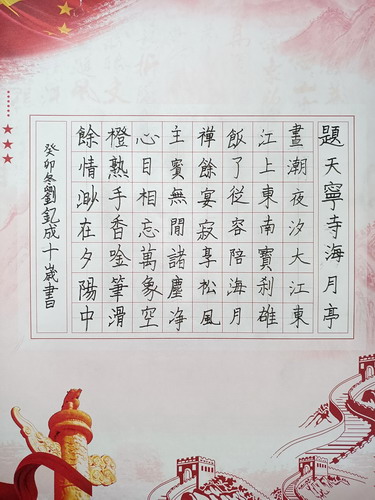 題天寧寺海月亭
晝潮夜汐大江東
江上東南寶刹雄
飯了從容陪海月
禅餘宴寂享松風
主賓無間諸塵净
心目相忘萬象空
橙熟手香唫筆滑
餘情渺在夕陽中
癸卯冬劉釔成十歲書